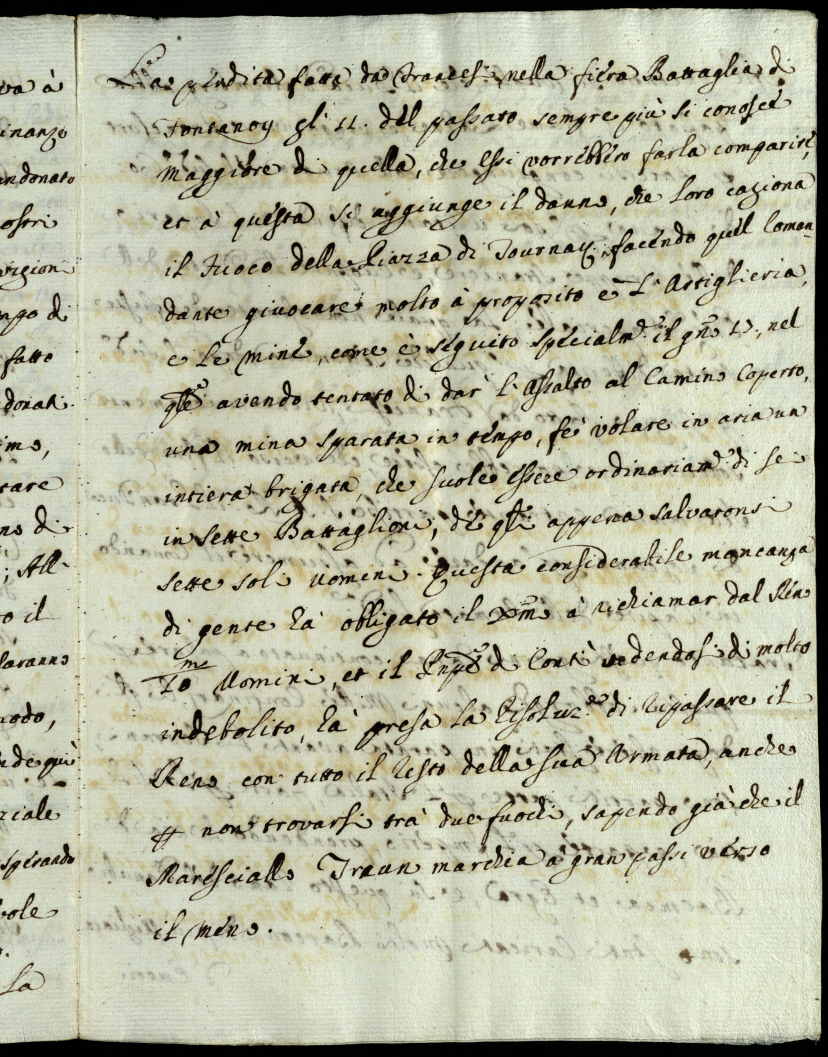 va à
inanzo
andonato
ostri
vigioni
mpo di
fatto
donati
imo,
tare
no di
; All-
o il
saranno
modo,
ede più
ziale
sperando
vole
La
La perdita fatta da Francesi nella fiera Battaglia di
Fontanoy gl' 11. del passato sempre più si conosce
maggiore di quella, che essi vorrebbero farla comparire,
et à questa si aggiunge il danno, che loro cagiona
il fuoco della Piazza di Tournay, facendo quel Coman-
dante giuocare molto à proposito e l'Artiglieria,
e le mine, come è seguito specialm.te il gno 1., nel
qle avendo tentato di dar l'assalto al Camino Coperto,
una mina sparata in tempo, fe' volare in aria un
intiera brigata, che suole essere ordinariam.te di sei
in sette Battaglioni, de qli appena salvaronsi
sette soli uomini. Questa considerabile mancanza
di gente hà obligato il à richiamar dal Reno
Uomini, et il Pnpe di Conti vedendosi di molto
indebolito, hà presa la risoluz.ne di ripassare il
Reno con tutto il resto della sua Armata, anche
p non trovarsi trà due fuochi, sapendo già che il
Maresciallo Traun marchia à gran passi verso
il Meno.